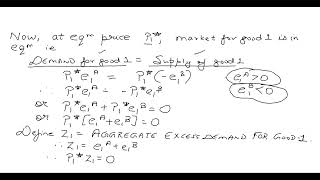 Now, at eqm price P1*, market for good 1 is in
eqm i.e
Demand for good 1 = Supply of good 1
P1* e1A = P1* (-e1B)
e1A > 0
e1B < 0
∴ P1* e1A = - P1* e1B
or P1* e1A + P1* e1B = 0
or P1* [e1A + e1B] = 0
Define Z1 = AGGREGATE EXCESS DEMAND FOR GOOD 1.
∴ Z1 = e1A + e1B
∴ P1* Z1 = 0